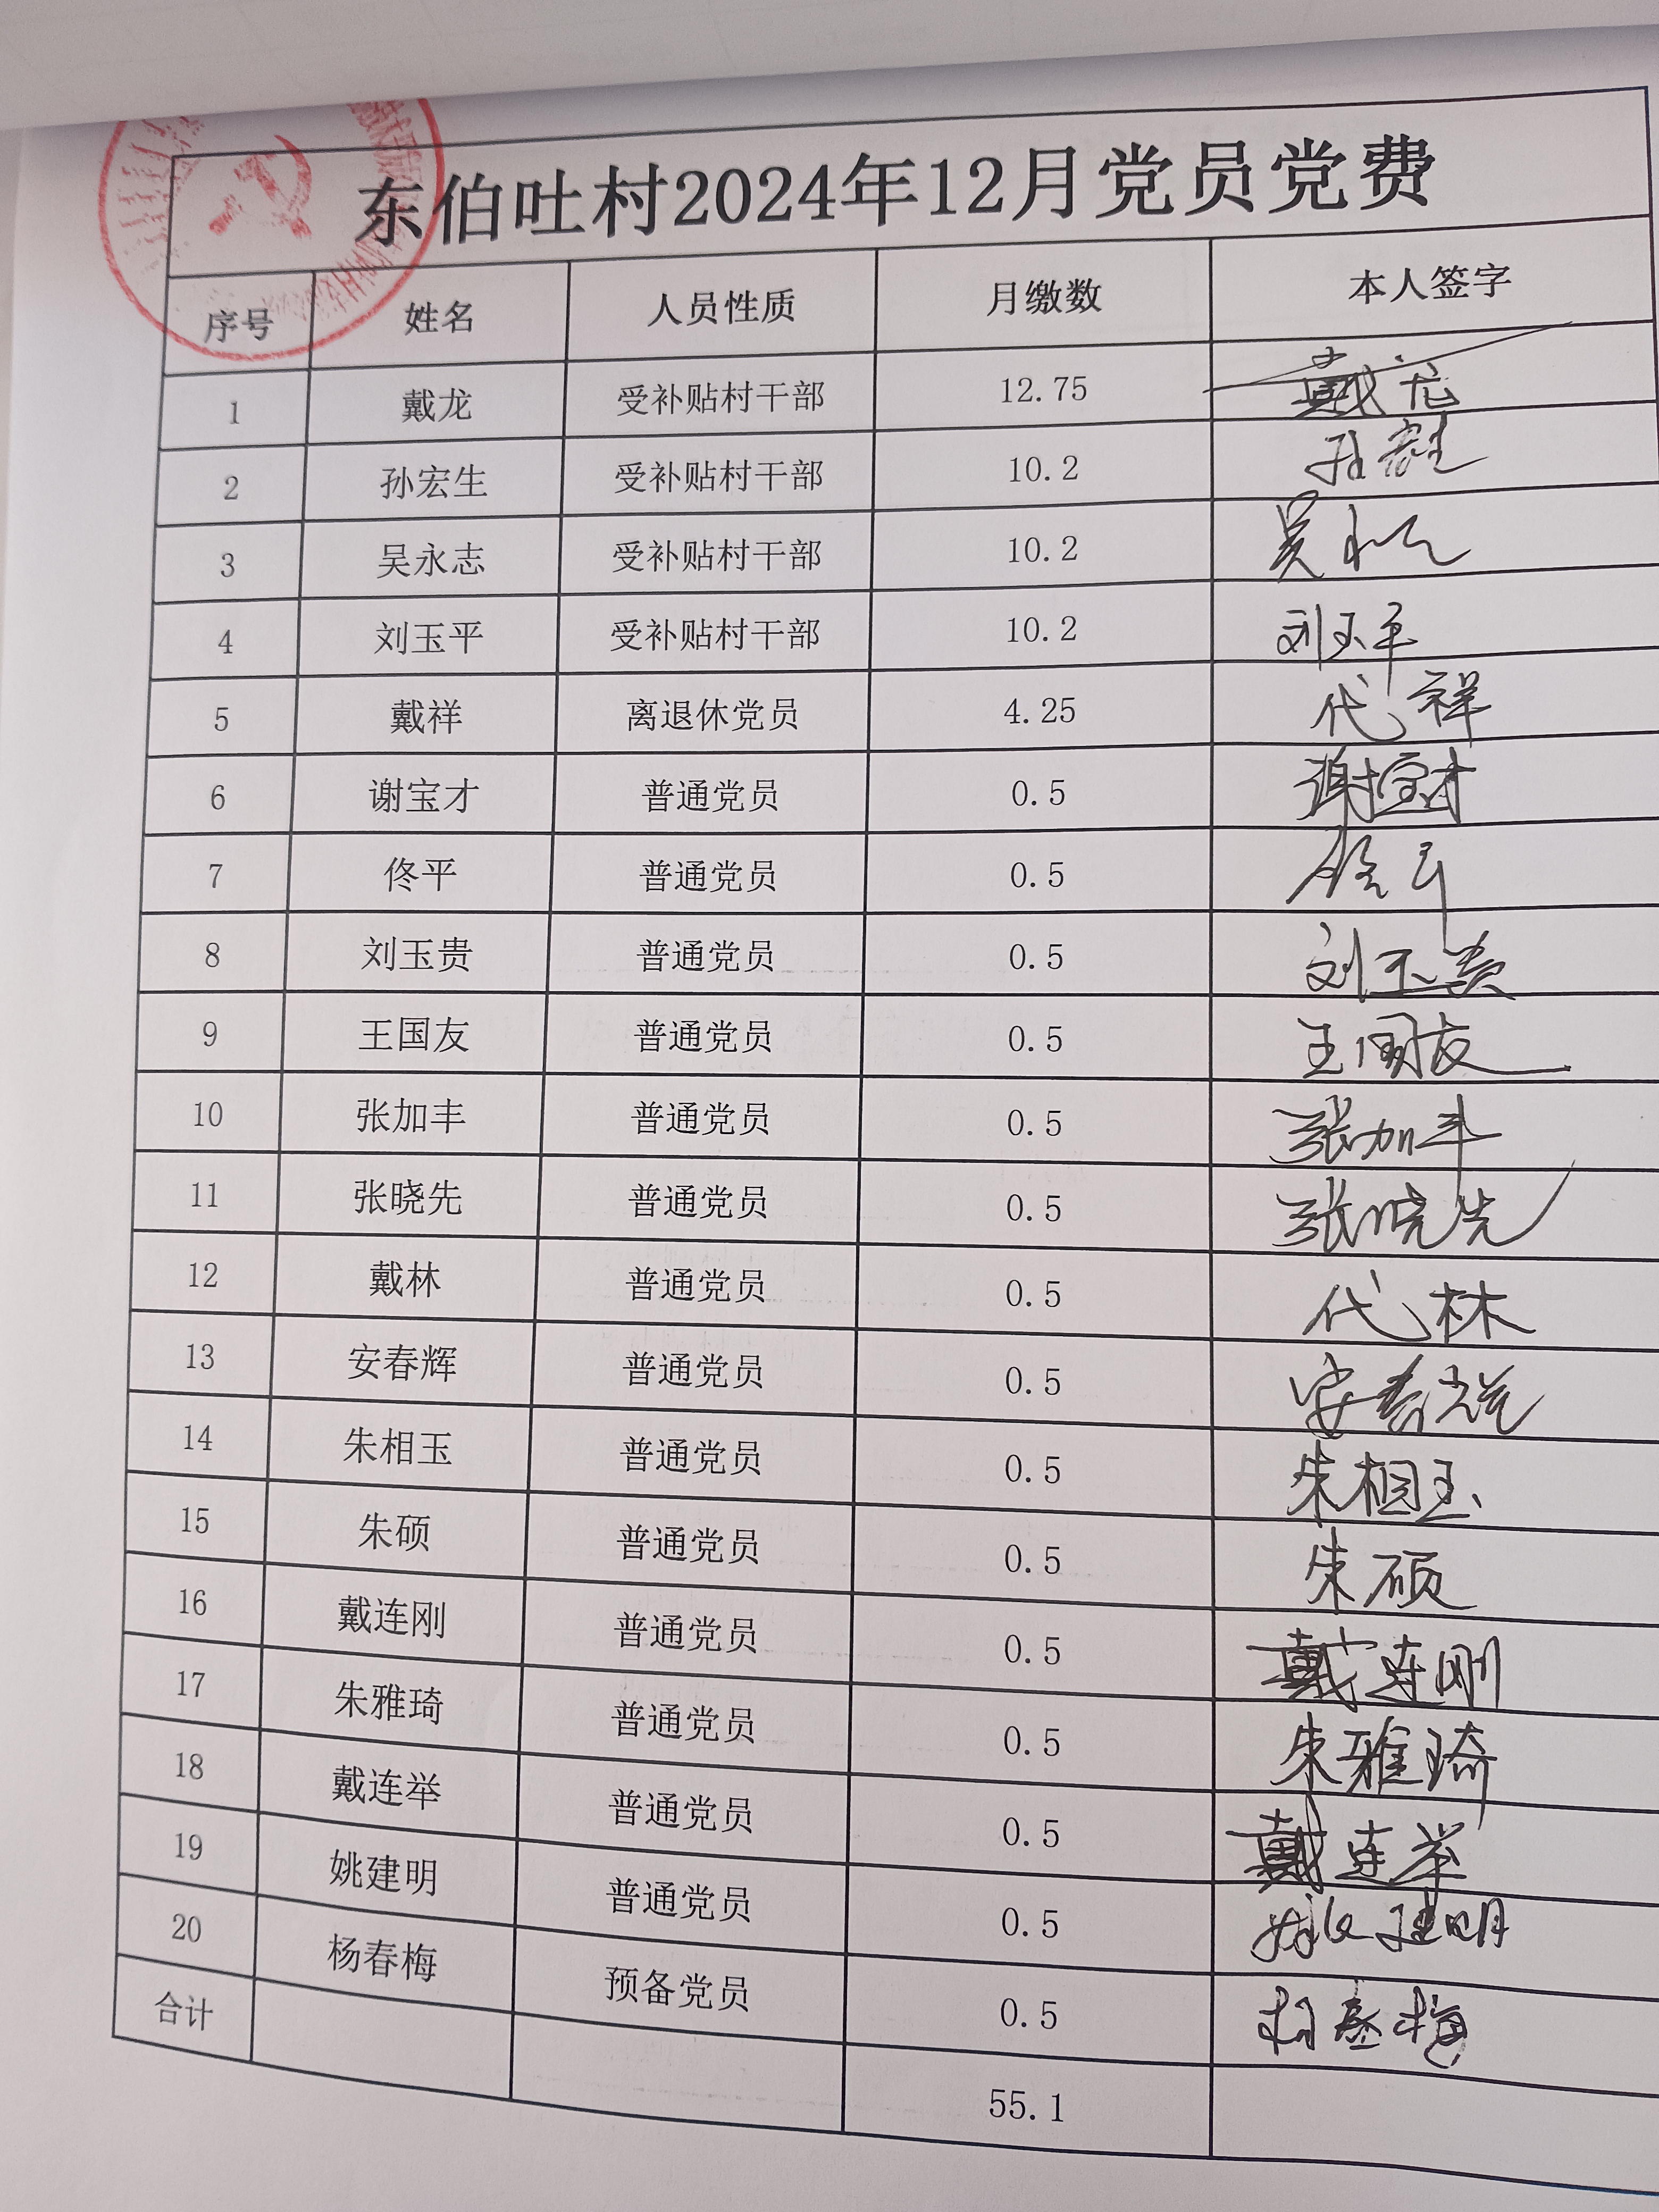 东伯吐村2024年12月党员党费
序号 姓名 人员性质 月缴数 本人签字
1 戴龙 受补贴村干部 12.75 戴龙
2 孙宏生 受补贴村干部 10.2 孙宏生
3 吴永志 受补贴村干部 10.2 吴永志
4 刘玉平 受补贴村干部 10.2 刘玉平
5 戴祥 离退休党员 4.25 代祥
6 谢宝才 普通党员 0.5 谢宝才
7 佟平 普通党员 0.5 佟平
8 刘玉贵 普通党员 0.5 刘玉贵
9 王国友 普通党员 0.5 王国友
10 张加丰 普通党员 0.5 张加丰
11 张晓先 普通党员 0.5 张晓先
12 戴林 普通党员 0.5 代林
13 安春辉 普通党员 0.5 安春辉
14 朱相玉 普通党员 0.5 朱相玉
15 朱硕 普通党员 0.5 朱硕
16 戴连刚 普通党员 0.5 戴连刚
17 朱雅琦 普通党员 0.5 朱雅琦
18 戴连举 普通党员 0.5 戴连举
19 姚建明 普通党员 0.5 姚建明
20 杨春梅 预备党员 0.5 杨春梅
合计 55.1